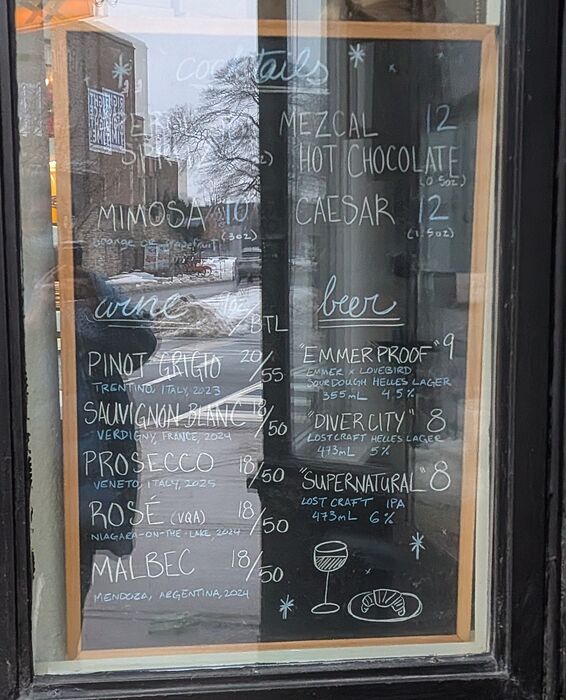 cocktails
MEZCAL 12
HOT CHOCOLATE
(0.5oz)
MIMOSA 10
orange or grapefruit (3oz)
CAESAR 12
(1.5oz)
wine
/BTL
PINOT GRIGIO 20/55
TRENTINO, ITALY, 2023
SAUVIGNON BLANC 18/50
VERDIGNY, FRANCE, 2024
PROSECCO 18/50
VENETO, ITALY, 2025
ROSÉ (VQA) 18/50
NIAGARA-ON-THE-LAKE, 2024
MALBEC 18/50
MENDOZA, ARGENTINA, 2024
beer
"EMMER PROOF" 9
EMMER x LOVEBIRD
SOURDOUGH HELLES LAGER
355mL 4.5%
"DIVERCITY" 8
LOST CRAFT HELLES LAGER
473mL 5%
"SUPERNATURAL" 8
LOST CRAFT IPA
473mL 6%